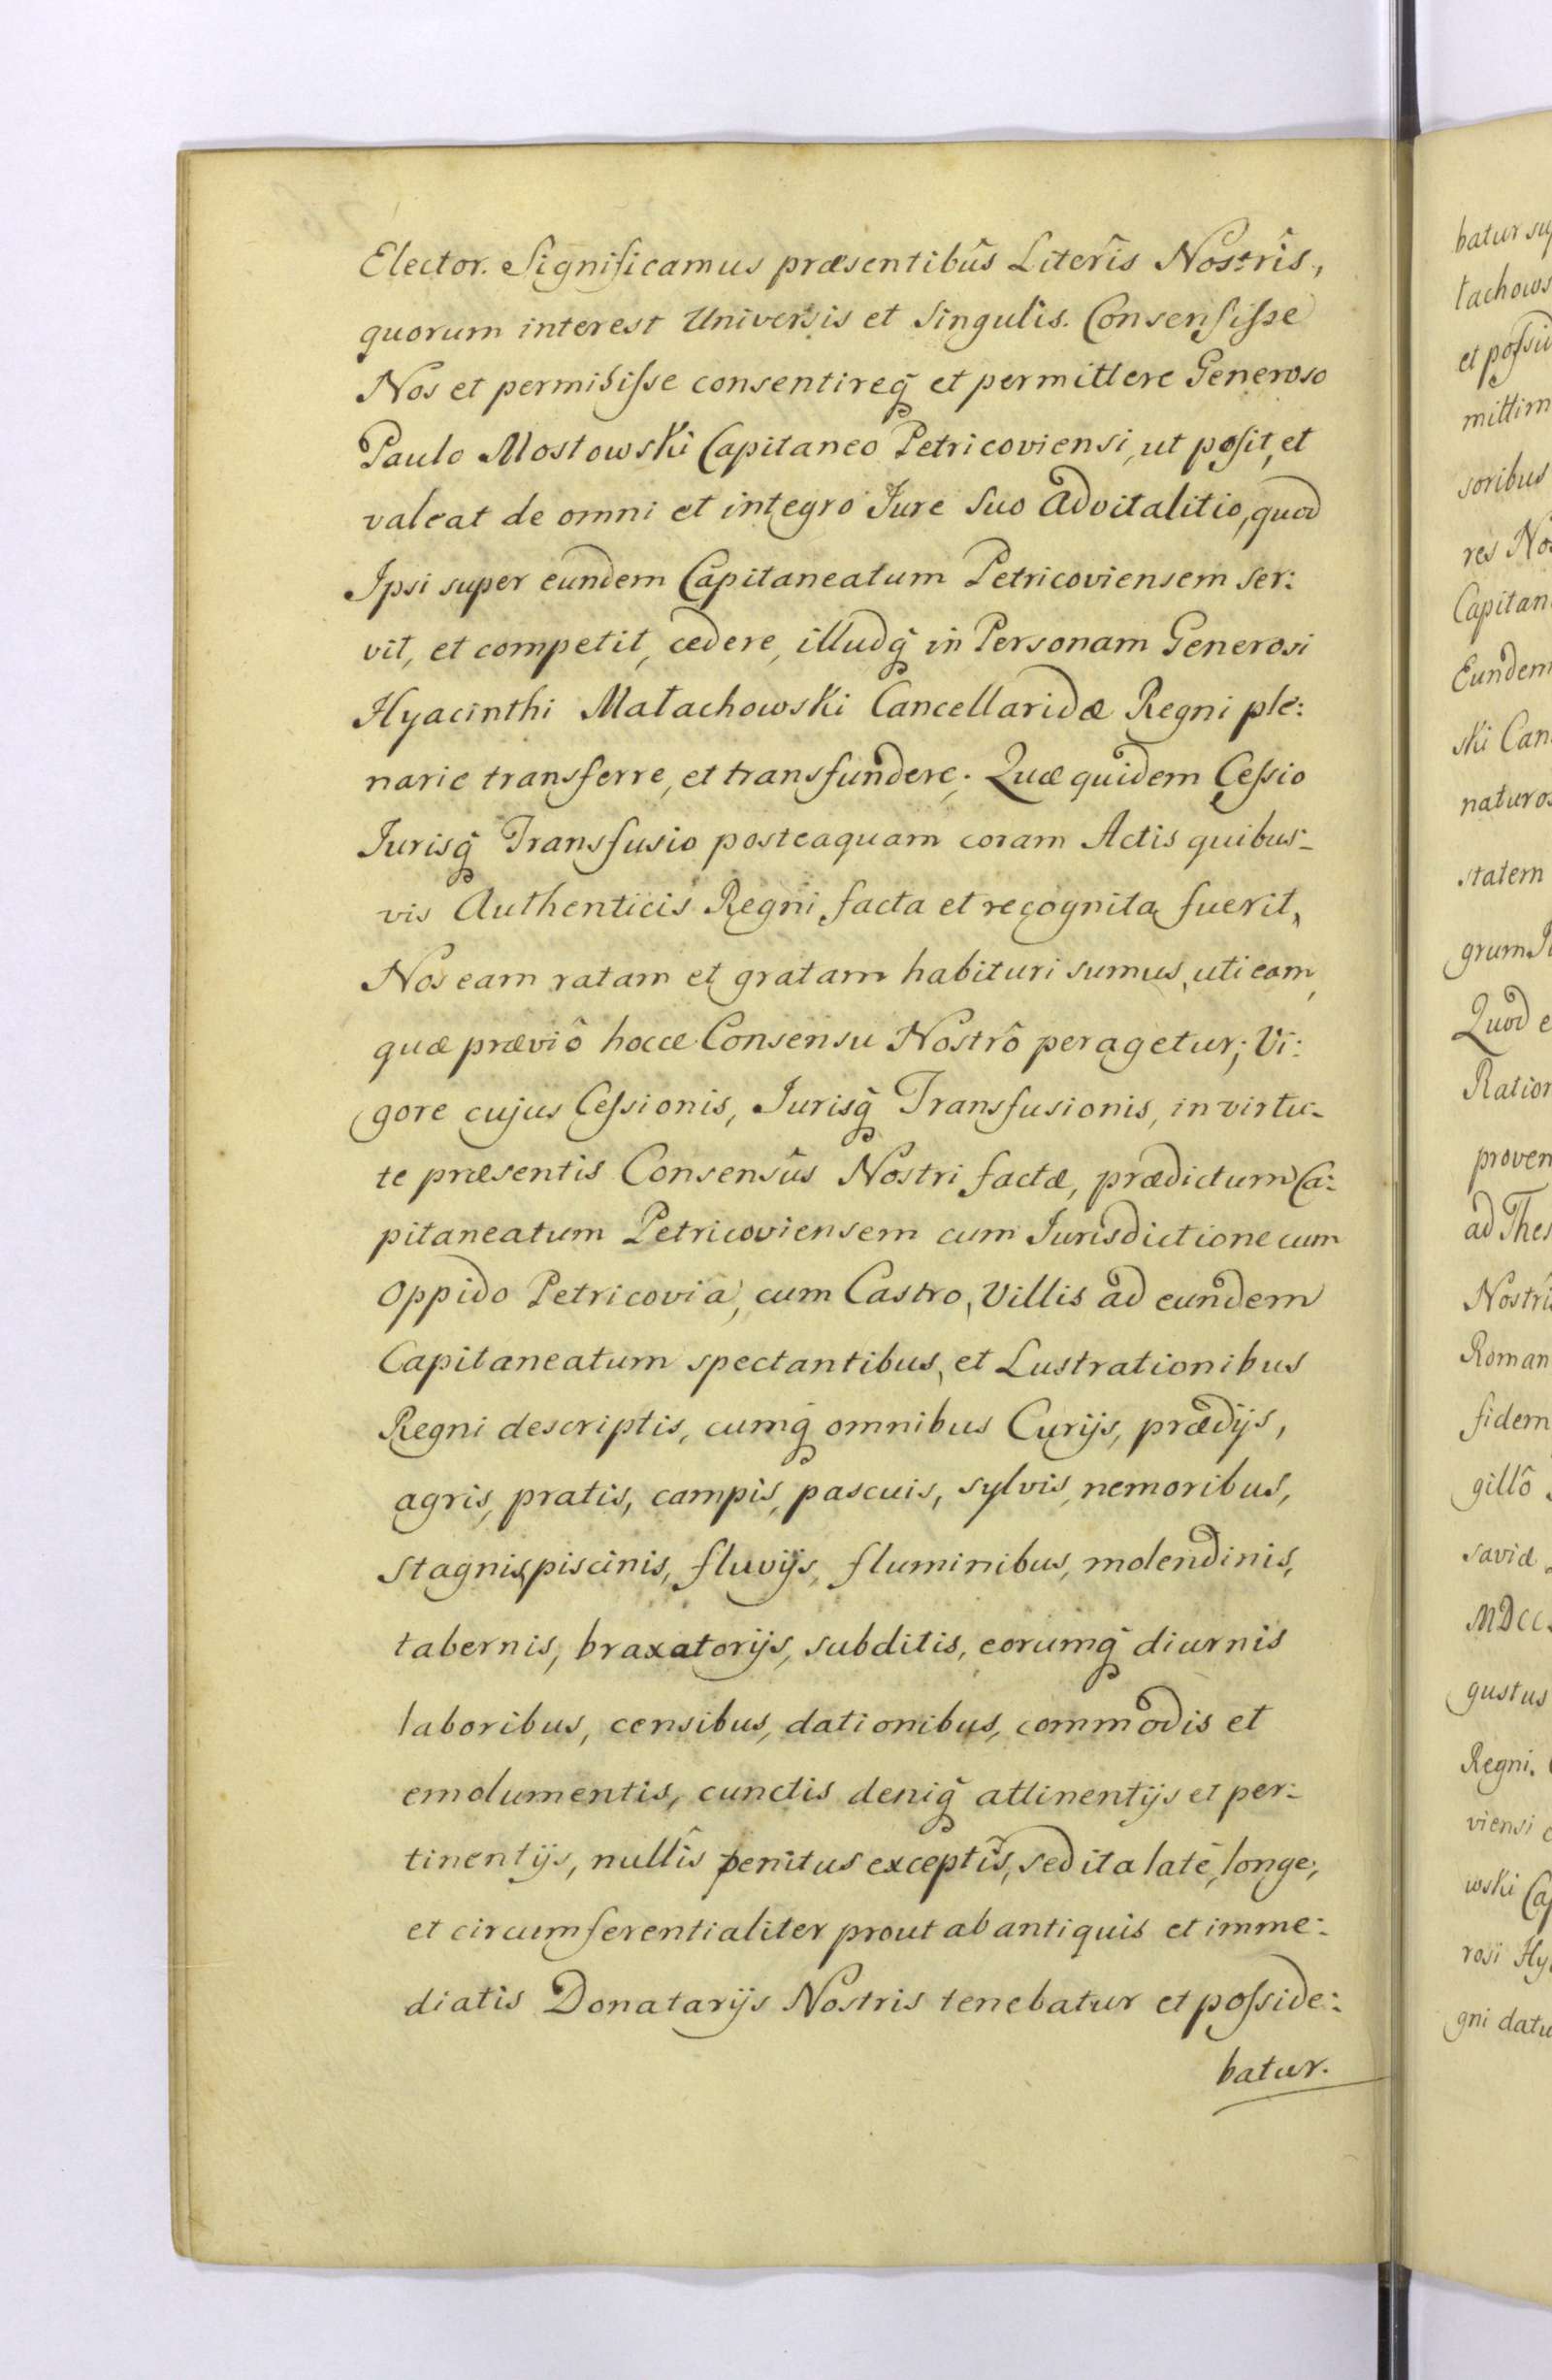 Elector. Significamus præsentibûs Literîs Nostrîs,
quorum interest Universis et Singulis. Consensiſse
Nos et permisiſse consentireq̃ et permittere Generoso
Paulo Mostowski Capitaneo Petricoviensi, ut poſit, et
valeat de omni et integro Jure Suo advitalitio, quod
Ipsi super eundem Capitaneatum Petricoviensem ser:
vit, et competit, cedere, illudq̃ in Personam Generosi
Hyacinthi Małachowski Cancellaridæ Regni ple:
narie transferre, et transfundere. Quæ quidem Ceſsio
Jurisq̃ Transfusio posteaquam coram Actis quibus-
vis Authenticis Regni facta et recognita fuerit,
Nos eam ratam et gratam habituri sumus, uti eam,
quæ præviô hocce Consensu Nostrô peragetur; Vi:
gore cujus Ceſsionis, Jurisq̃ Transfusionis, in virtu-
te præsentis Consensûs Nostri factæ, prædictum Ca:
pitaneatum Petricoviensem cum Jurisdictione cum
Oppido Petricovia, cum Castro, Villis ad eundem
Capitaneatum spectantibus, et Lustrationibus
Regni descriptis, cumq̃ omnibus Curijs, prædijs,
agris, pratis, campis, pascuis, sylvis, nemoribus,
Stagnis, piscinis, fluvijs, fluminibus, molendinis,
tabernis, braxatorijs, subditis, eorumq̃ diurnis
laboribus, censibus, dationibus, commodis et
emolumentis, cunctis deniq̃ attinentijs et per:
tinentijs, nullîs penitus exceptîs, sed ita latè, longe,
et circumferentialiter prout ab antiquis et imme:
diatis Donatarijs Nostris tenebatur et poſside:
batur.
batur su
łachows
et poſsid
mittim
soribus
res No
Capitan
Eundem
ski Can
naturos
statem
grum
Quod e
Ration
proven
ad Thes
Nostri
Roman
fidem
gillô
saviæ
MDCC
gustus
Regni.
viensi
wski Ca
rosi Hy
gni datu